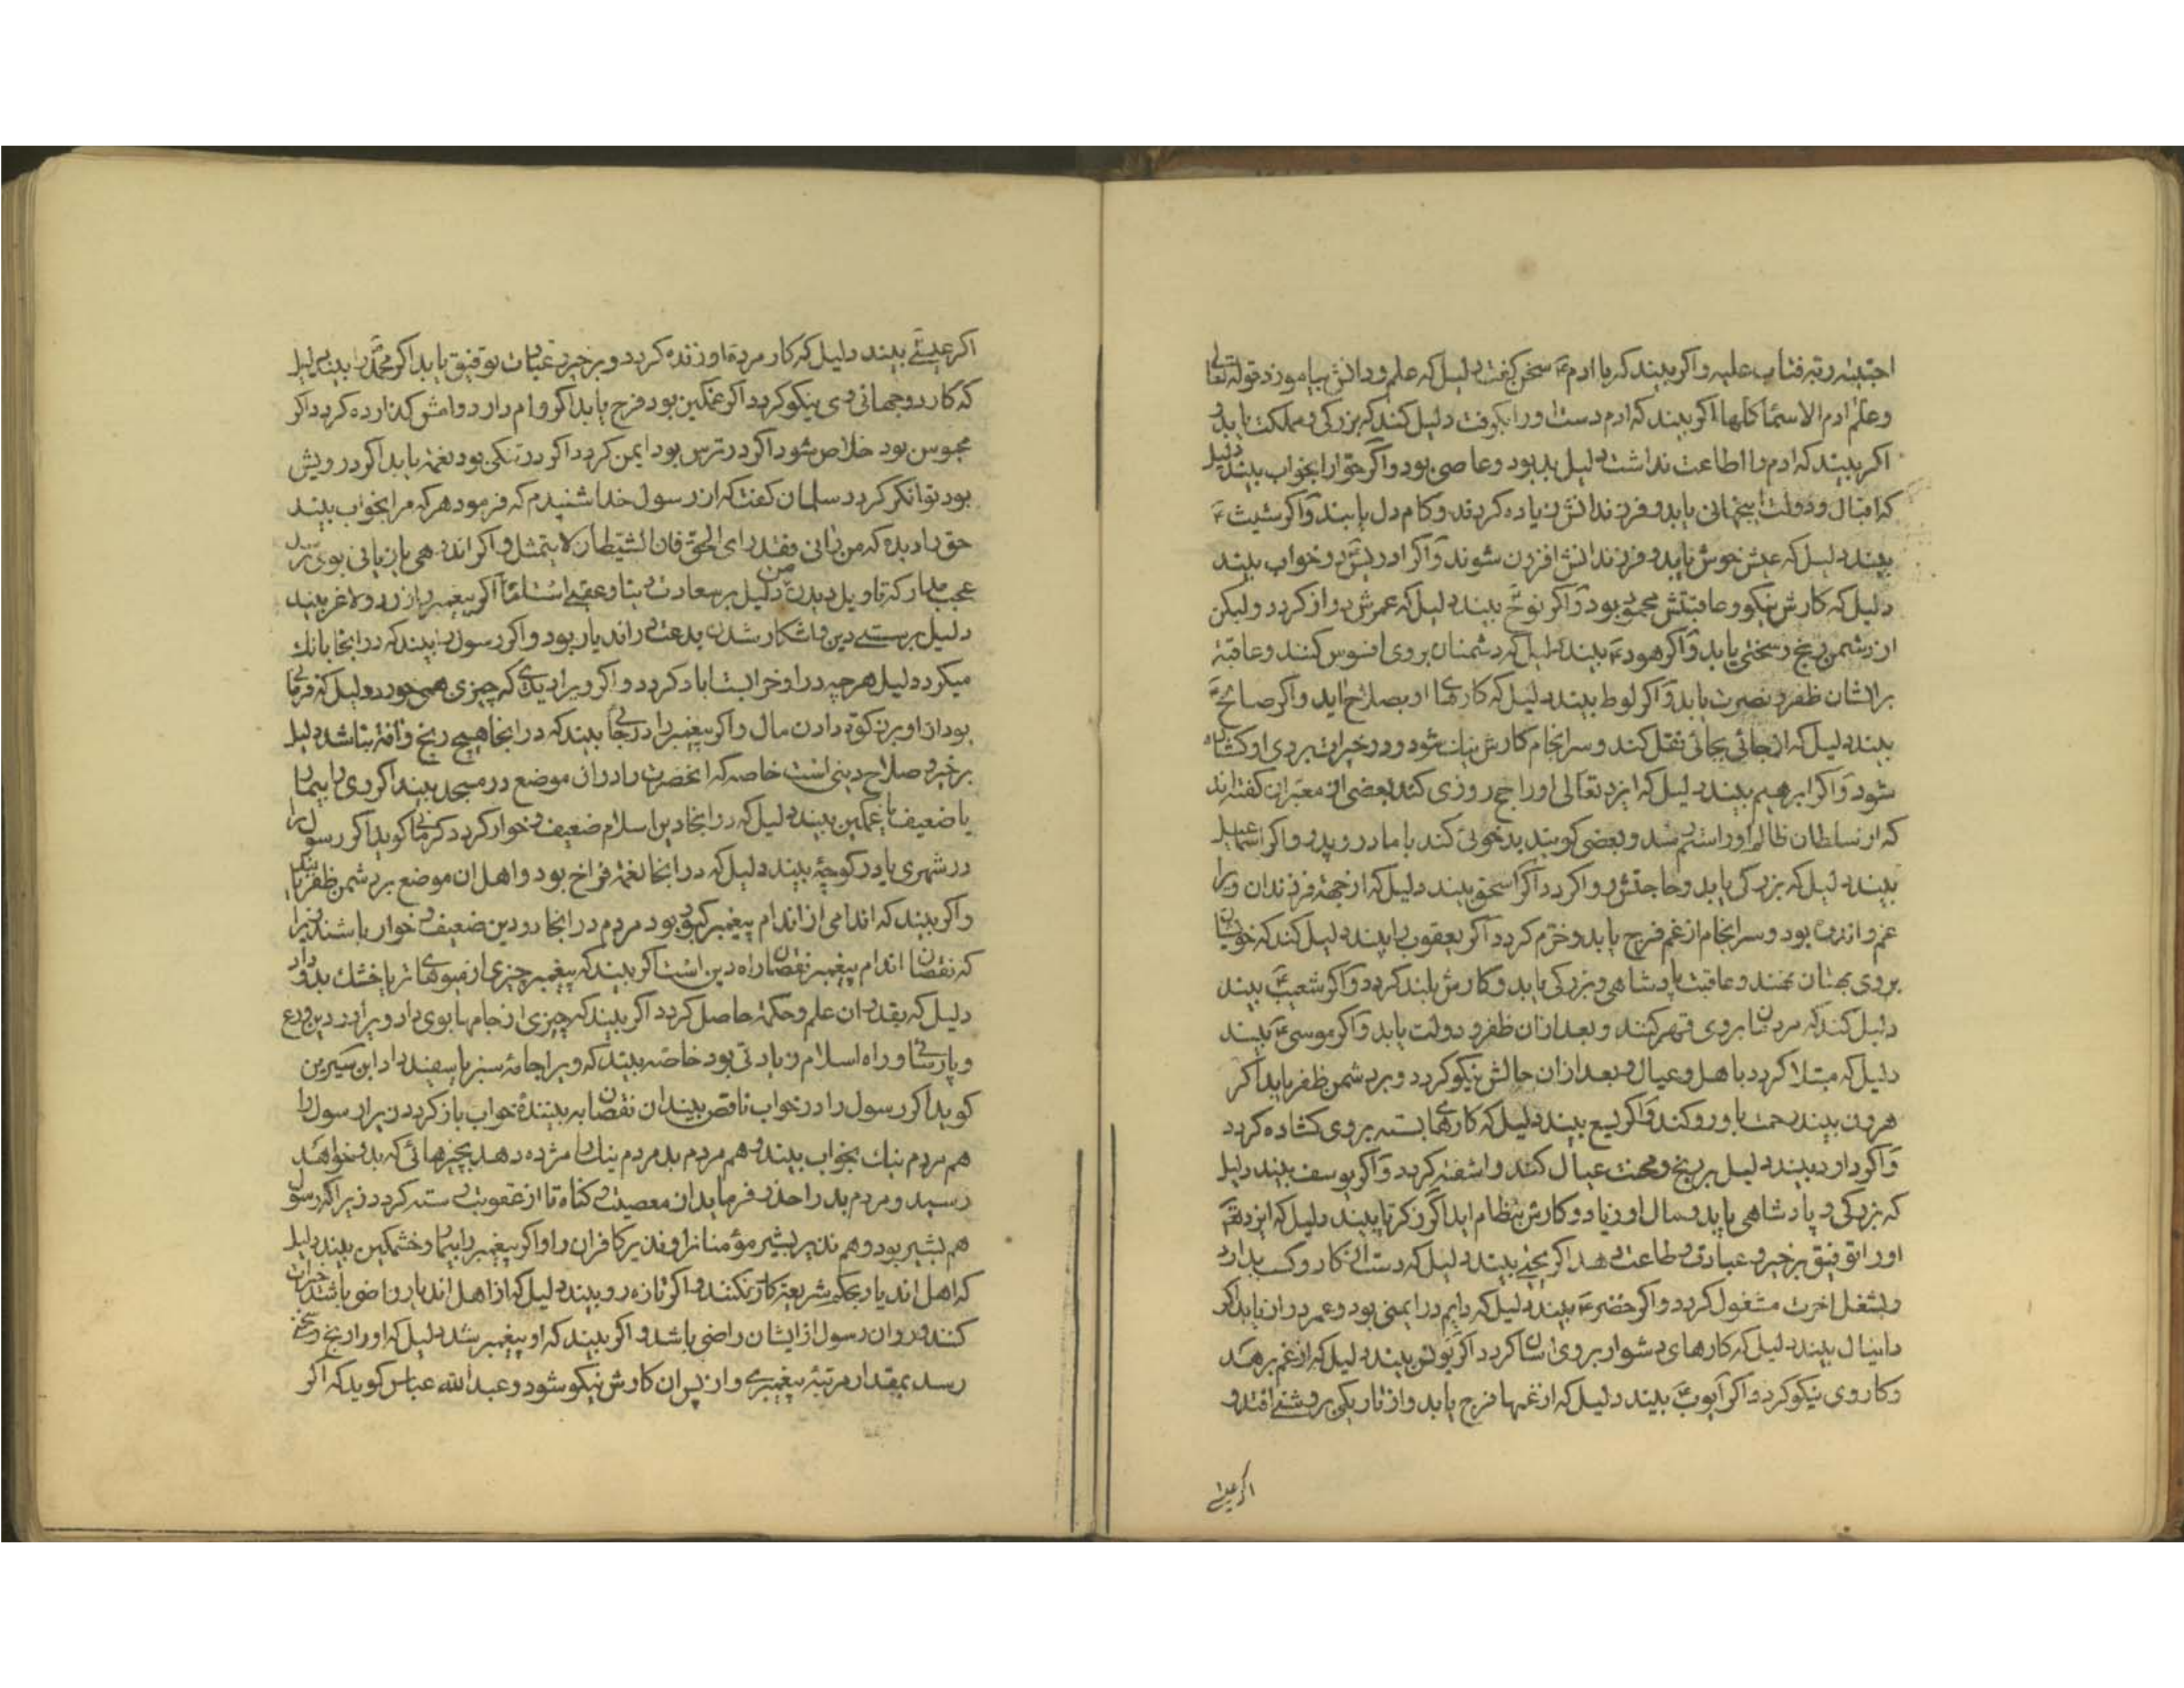 اجتبیه ربه فتاب علیه و اکر بیند که با ادم ع سخن کفت دلیل که علم و دانش بیاموزد قوله تعالی
و علم ادم الاسما کلها اکر بیند که ادم دست او را بکرفت دلیل کند که بزرکی و مملکت یابد و
اکر بیند که ادم را اطاعت نداشت دلیل بد بود و عاصی بود و اکر حوا را بخواب بیند دلیل
که اقبال و دولت اینجهانی یابد و فرزندانش زیاده کردند و کام دل یابند و اکر شیث ع
بیند دلیل که عیش خوش یابد و فرزندانش افزون شوند و اکر ادریس در خواب بیند
دلیل که کارش نیکو و عاقبتش محمود بود و اکر نوح بیند دلیل که عمرش دراز کردد ولیکن
از دشمن رنج و سختی یابد و اکر هود ع بیند دلیل که دشمنان بروی افسوس کنند و عاقبة
برایشان ظفر و نصرت یابد و اکر لوط بیند دلیل که کارهای او بصلاح اید و اکر صالح ع
بیند دلیل که از جائی بجائی نقل کند و سرانجام کارش نیک شود و در خیرات بروی کشاده
شود و اکر ابرهیم بیند دلیل که ایزد تعالی او را حج روزی کند بعضی از معبران کفته اند
که از سلطان ظالم او را ستم رسد و بعضی کویند بدخوئی کند با مادر و پدر و اکر اسماعیل
بیند دلیل که بزرکی یابد و حاجتش روا کردد اکر اسحق بیند دلیل که از جهة فرزندان ویرا
غم و اندوه بود و سرانجام از غم فرج یابد و خرم کردد اکر یعقوب را بیند دلیل کند که خویشان
بروی بهتان نهند و عاقبت پادشاهی و بزرکی یابد و کارش بلند کردد و اکر شعیب بیند
دلیل کند که مردمان بروی قهر کنند و بعد ازان ظفر و دولت یابد و اکر موسی ع بیند
دلیل که مبتلا کردد باهل و عیال و بعد ازان حالش نیکو کردد و بر دشمن ظفر یابد اکر
هرون بیند رحمت باو رو کند و اکر یسع بیند دلیل که کارهای بسته بروی کشاده کردد
و اکر داود بیند دلیل بر رنج و محنت عیال کند و اشفته کردد و اکر یوسف بیند دلیل
که بزرکی و پادشاهی یابد و مال او زیاد و کارش بنظام اید اکر زکریا بیند دلیل که ایزد تعالی
او را توفیق بر خیر و عبادت و طاعت دهد اکر یحیی بیند دلیل که دست از کار و کسب بدارد
و بشغل اخرت مشغول کردد و اکر خضر ع بیند دلیل که دایم در ایمنی بود و عمر دراز یابد اکر
دانیال بیند دلیل که کارهای دشوار بروی اسان کردد اکر یونس بیند دلیل که از غم برهد
و کار وی نیکو کردد و اکر ایوب ع بیند دلیل که از غمها فرج یابد و از تاریکی بروشنی افتد و
اکر عیسی
اکر عیسی بیند دلیل که کار مرده او زنده کردد و بر خیر و عبادت توفیق یابد اکر محمد را بیند دلیل
که کار دو جهانی وی نیکو کردد اکر غمکین بود فرج یابد اکر وام دارد وامش کذارده کردد اکر
محبوس بود خلاص شود اکر در ترس بود ایمن کردد اکر در تنکی بود نعمة یابد اکر درویش
بود توانکر کردد سلمان کفت که از رسول خدا شنیدم که فرمود هر که مرا بخواب بیند
حق را دیده که من رانی فقد رای الحق فان الشیطان لا یتمثل
دلیل بر سعادت دنیا و عقبی است اما اکر پیغمبر را زرد و لاغر بیند
دلیل بر سستی دین و اشکار شدن بدعت دران دیار بود و اکر رسول را بیند که در انجا بانك
میکرد دلیل هر چه در او خرابست اباد کردد و اکر ویرا دید که چیزی همی خورد دلیل که فرمانی
بود از او بر زکوة دادن مال و اکر پیغمبر را در جائی بیند که در انجا هیچ رنج و افة نباشد دلیل
بر خیر و صلاح دینی است خاصه که انحضرت را دران موضع در مسجد بیند اکر وی را بیمار
یا ضعیف یا غمکین بیند دلیل که در انجا دین اسلام ضعیف و خوار کردد کرمانی کوید اکر رسول را
در شهری یا در کوچۀ بیند دلیل که در انجا نعمة فراخ بود و اهل ان موضع بر دشمن ظفر یابند
و اکر بیند که اندامی از اندام پیغمبر کبود بود مردم در انجا در دین ضعیف و خوار باشند زیرا
که نقصان اندام پیغمبر نقصان راه دین است اکر بیند که پیغمبر چیزی از میوهای تر یا خشك بدو داد
دلیل که بقدر ان علم و حکمة حاصل کردد اکر بیند که چیزی از جامها بوی داد ویرا در دین و ورع
و پارسائی و راه اسلام زیادتی بود خاصه بیند که ویرا جامۀ سبز یا سفید داد ابن سیرین
کوید اکر رسول را در خواب ناقص بیند ان نقصان به بینندۀ خواب باز کردد زیرا رسول را
هم مردم نیك بخواب بیند و هم مردم بد مردم نیك را مژده دهد بچیزهائی که بدو خواهد
رسید و مردم بد را حذر فرماید از معصیت و کناه تا از عقوبت رسته کردد زیرا که رسول
هم بشیر بود و هم نذیر بشیر مؤمنانرا و نذیر کافران را و اکر پیغمبر را بیمار و خشمکین بیند دلیل
که اهل اندیار بحکم شریعة کار نکنند و اکر تازه رو بیند دلیل که از اهل اندیار راضی باشند خیرات
کنند و روان رسول از ایشان راضی باشد و اکر بیند که او پیغمبر شد دلیل که او را رنج و سختی
رسد بمقدار مرتبۀ پیغمبری و از پس ان کارش نیکو شود و عبد الله عباس کوید که اکر